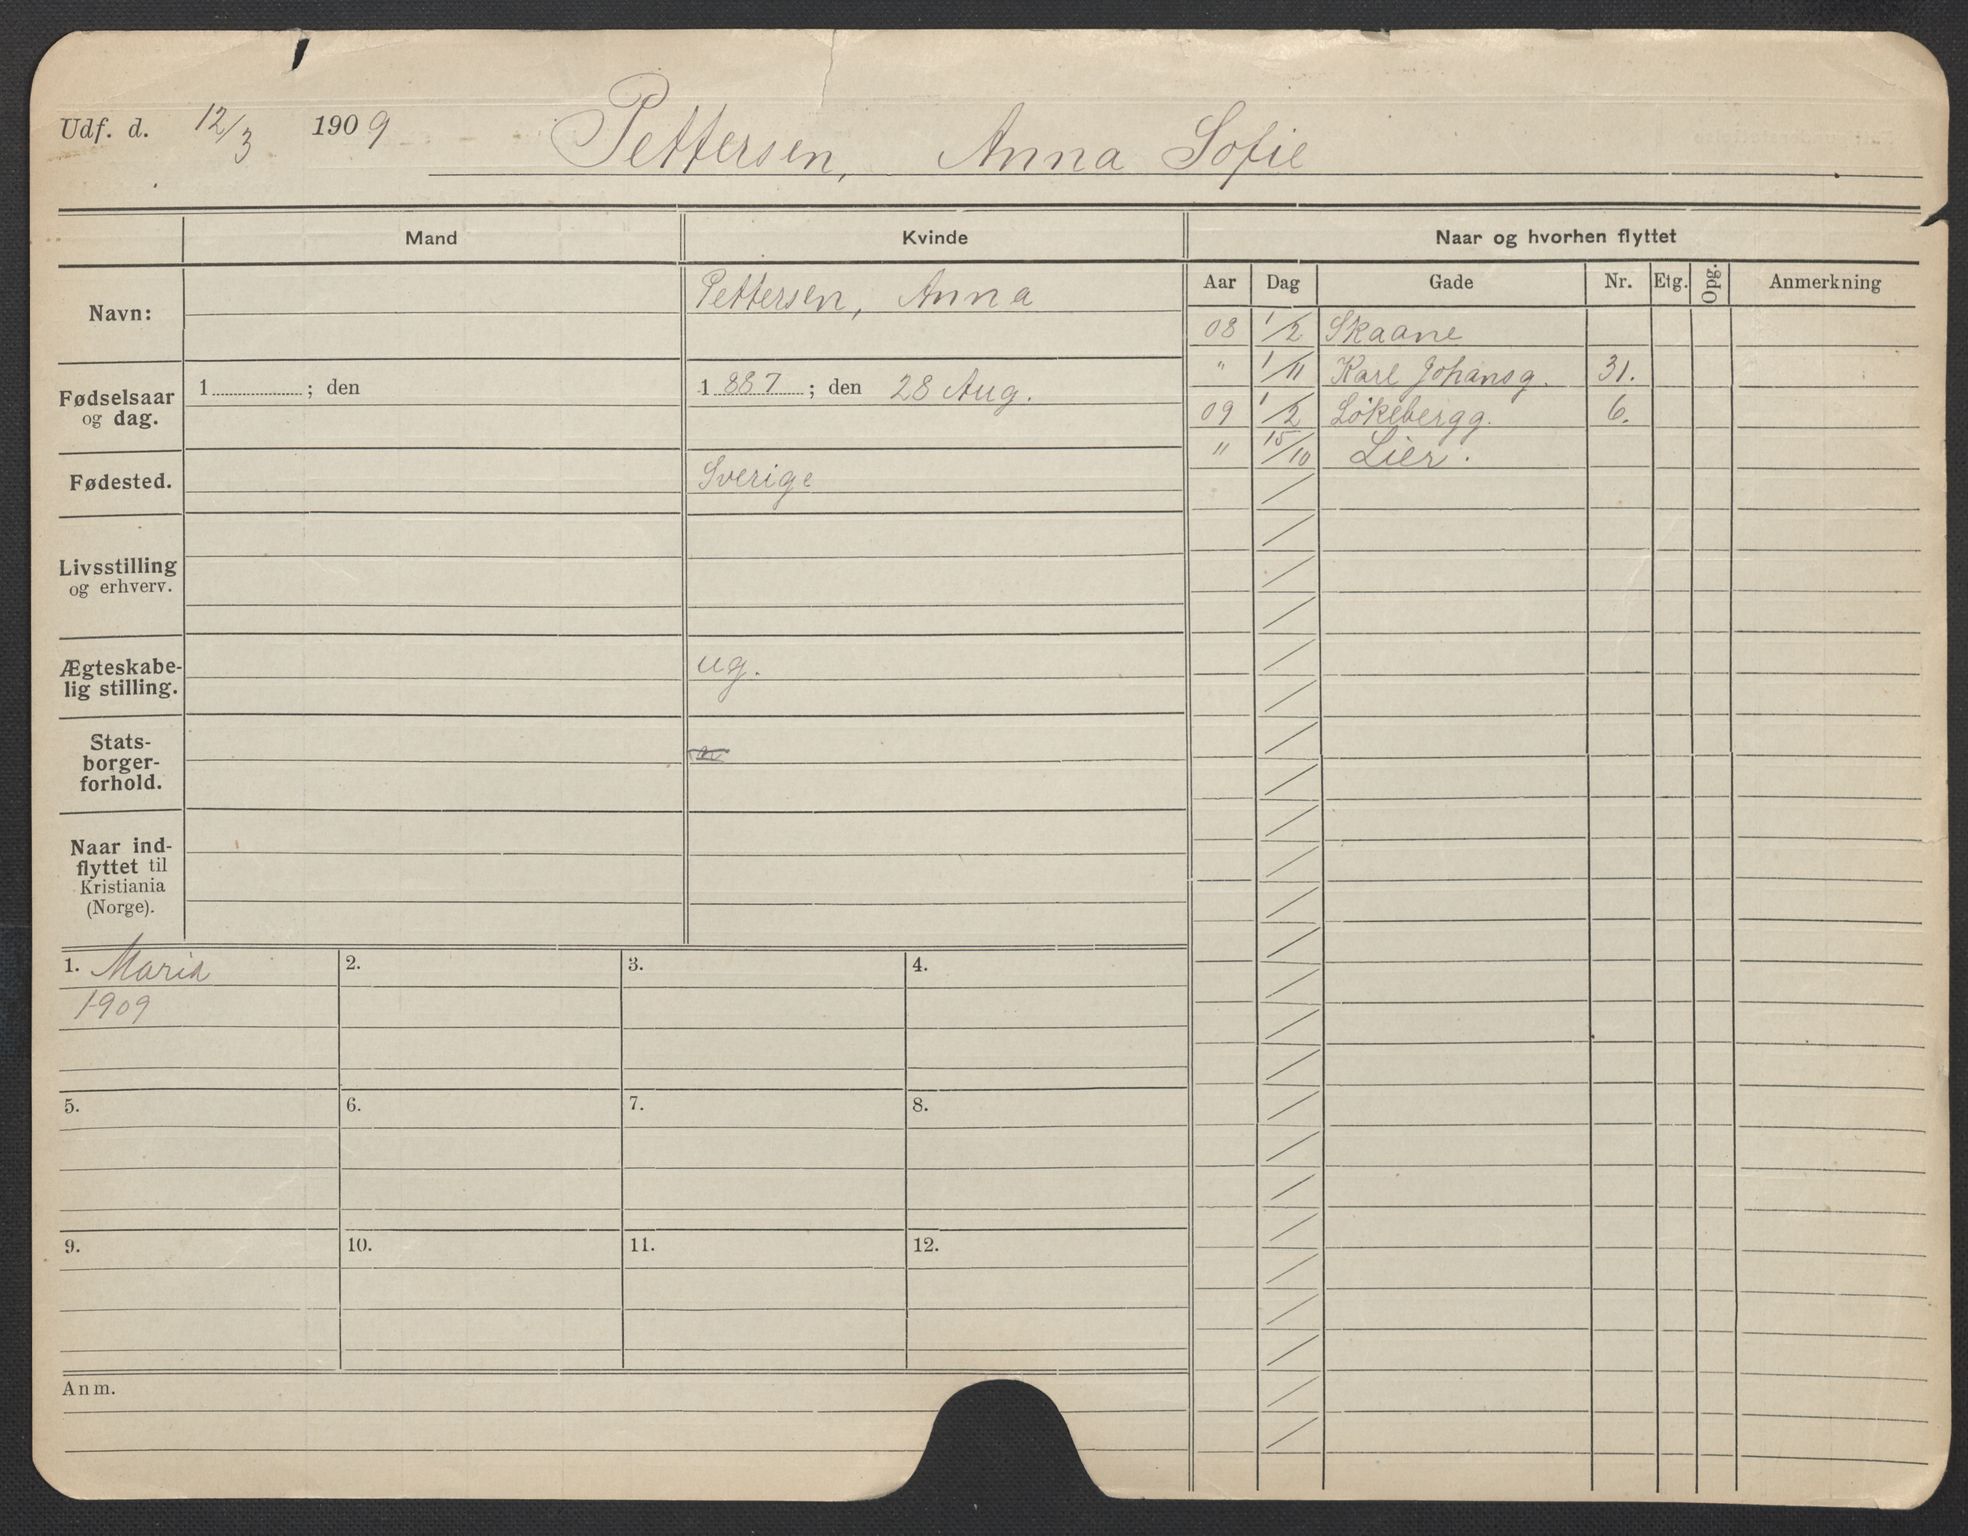 Udf. d. 12/3 1909 Pettersen, Anna Sofie
Mand Kvinde Naar og hvorhen flyttet
Aar Dag Gade Nr. Etg. Opg. Anmerkning
Navn: Pettersen, Anna
Fødselsaar og dag. 1 ; den 1 887 ; den 28 Aug.
Fødested. Sverige
Livsstilling og erhverv.
Ægteskabe-
lig stilling. ug.
Stats-
borger-
forhold.
Naar ind-
flyttet til
Kristiania
(Norge).
08 1/2 Skaane
" 1/11 Karl Johansg. 31.
09 1/2 Løkebergg. 6.
" 15/10 Lier.
1. Maria 2. 3. 4.
1909
5. 6. 7. 8.
9. 10. 11. 12.
Anm.